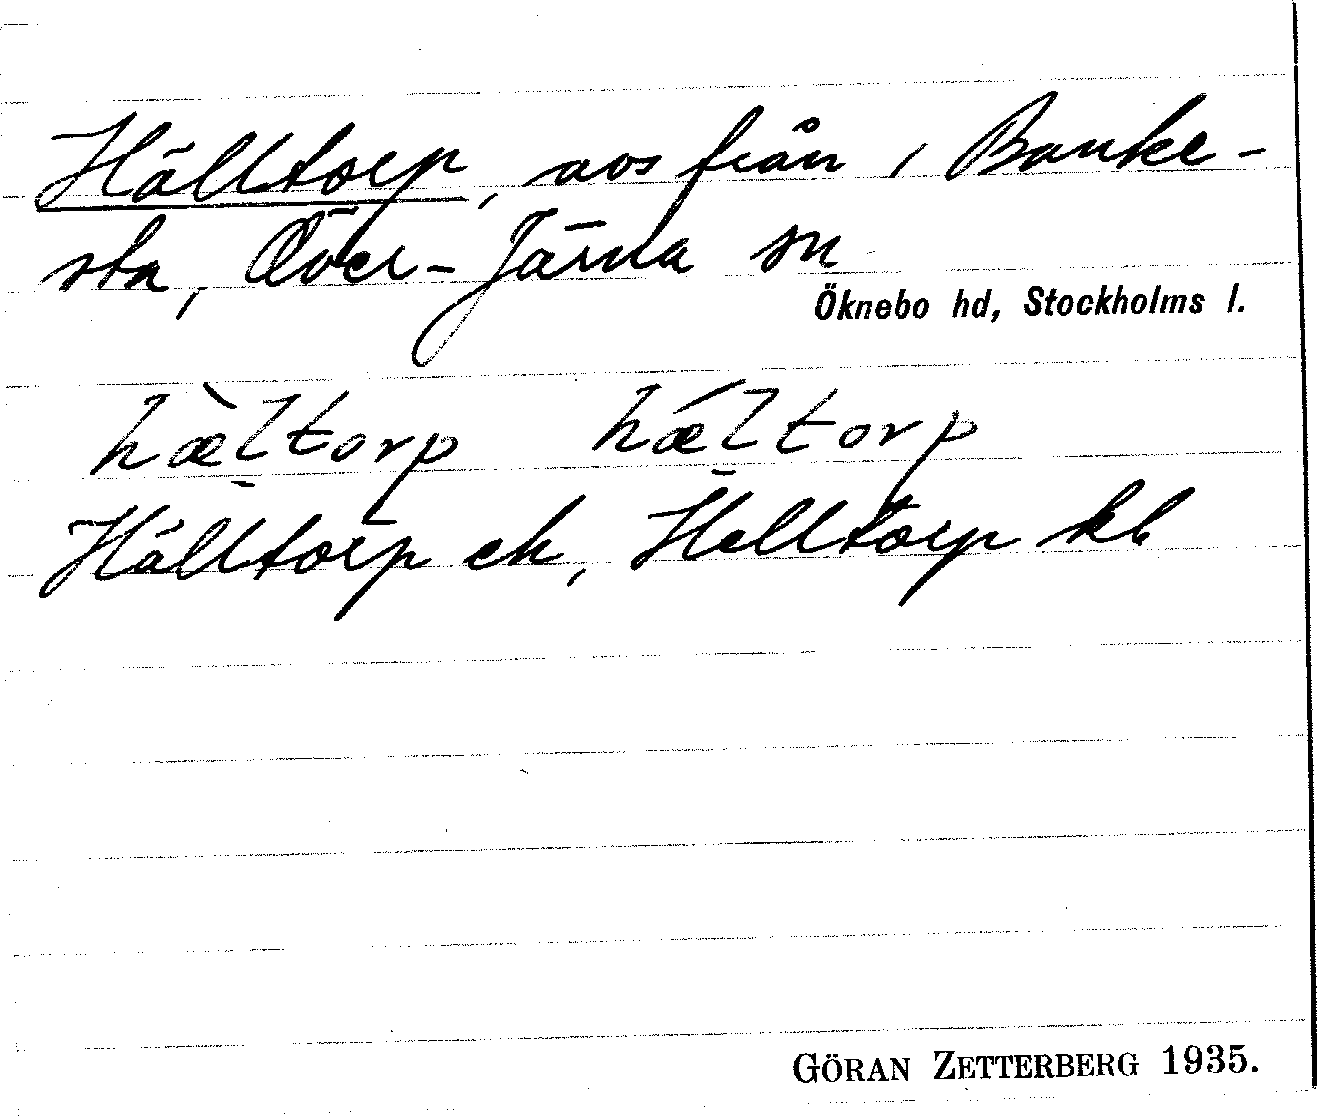 Hälltorp, avs från 1 Banke-
sta, Över-Järna sn
Öknebo hd, Stockholms l.
hæ̀ltorp hǽltorp
Hälltorp ek, Helltorp kb
GÖRAN ZETTERBERG 1935.